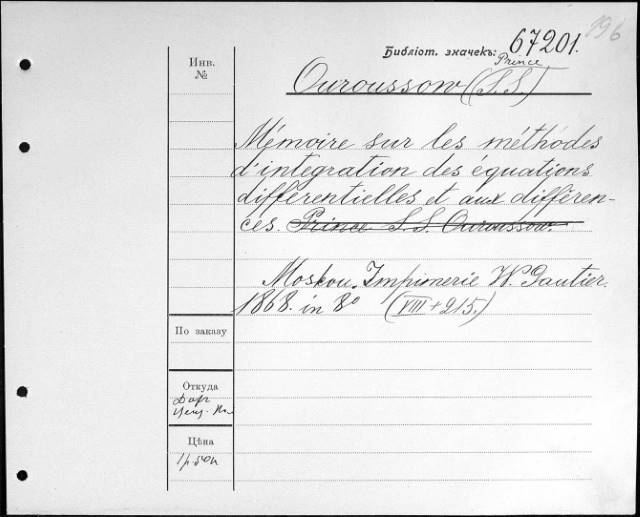 196
Библіот. значекъ: 67201.
Инв.
№
Prince
Ouroussow (S.S.)
Mémoire sur les méthodes
d'intégration des équations
différentielles et aux différen-
ces. Prince S. S. Ouroussow.
Moskou. Imprimerie W. Gautier.
1868. in 8° (VIII + 215.)
По заказу
Откуда
Дар
Цѣна
1 р 50 к